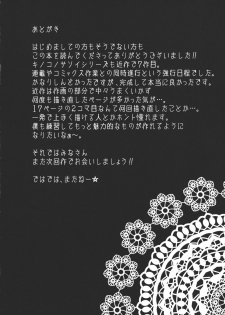 あとがき
はじめましての方もそうでない方も
この本を読んでくださってありがとうございました!!
キノコノサソイシリーズも近作で7作目。
連載やコミックス作業との同時進行という強行日程でした。
かなりしんどかったですが、完成して本当に良かった。
近作は作画の部分で中々うまくいかず
何度も描き直したページが多かった気が…。
17ページの2コマ目なんて何回描き直したことか…。
一発で上手く描ける人とかホント憧れます。
僕も練習してもっと魅力的なものが作れるように
なりたいなぁ~。
それではみなさん
また次回作でお会いしましょう!!
ではでは、またねー★